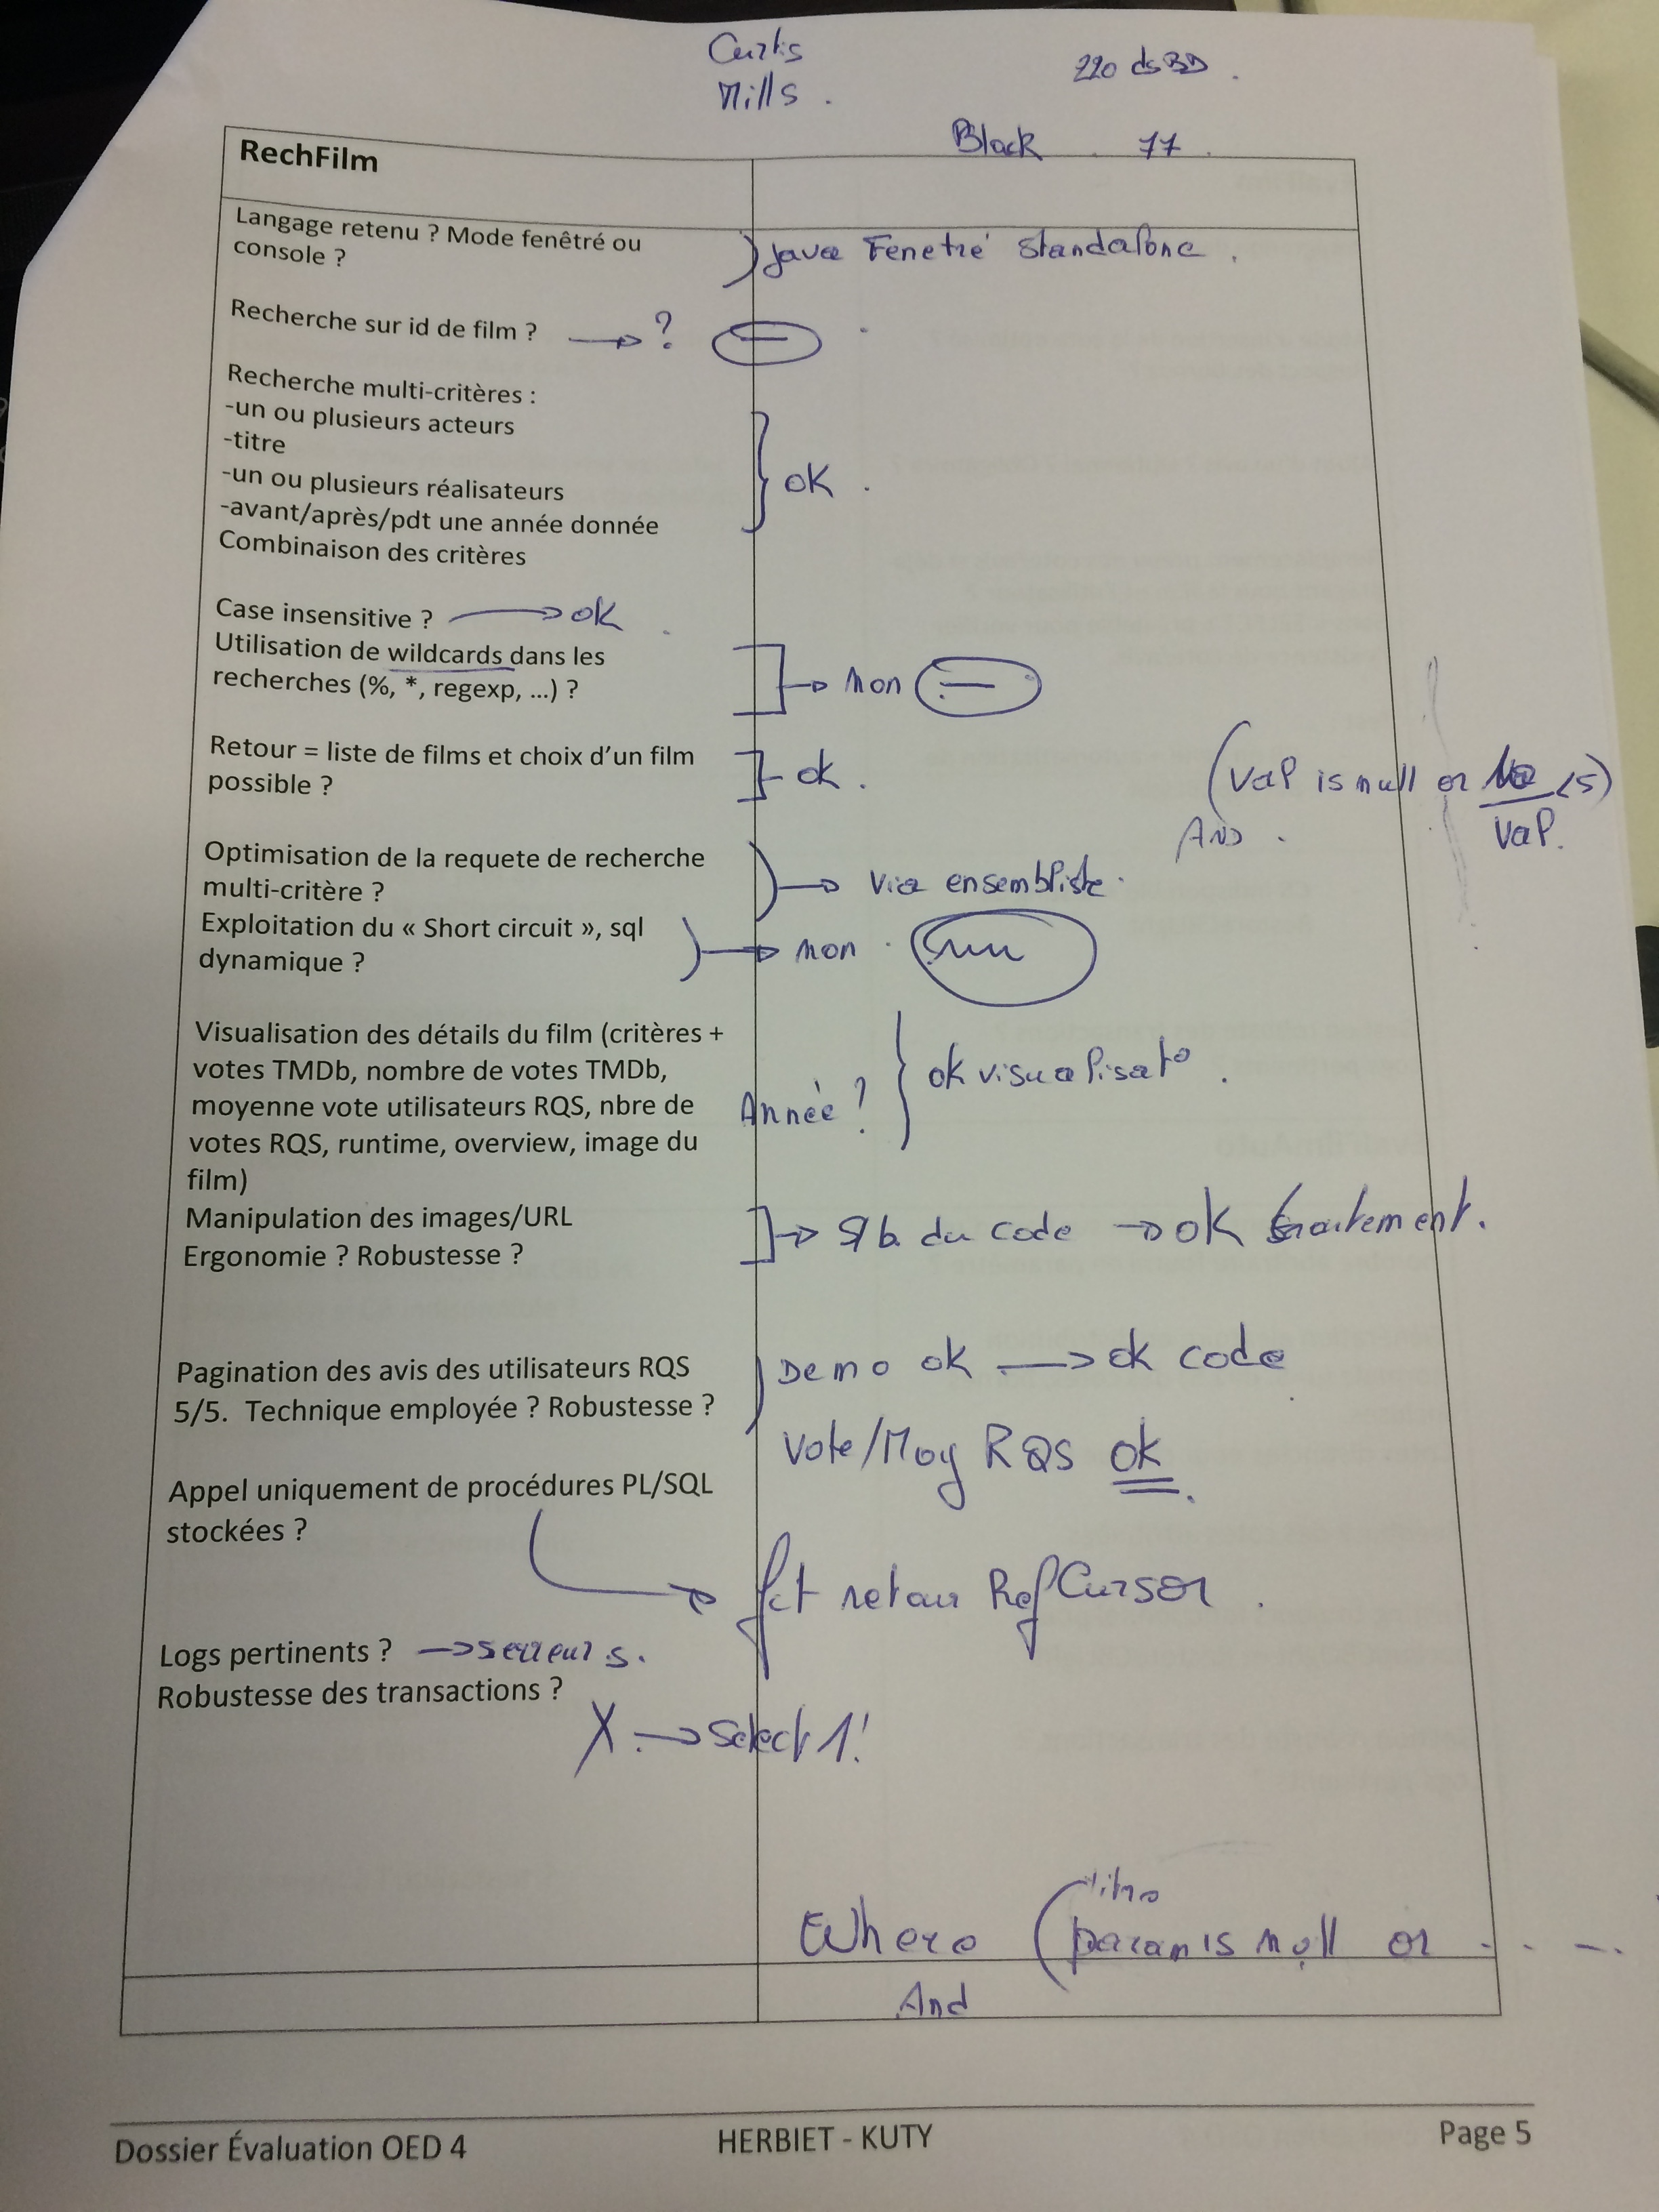 Curtis
Mills .
220 ds BD .
Black . 77 .
RechFilm
Langage retenu ? Mode fenêtré ou
console ?
Java Fenetré Standalone .
Recherche sur id de film ? → ? –
Recherche multi-critères :
-un ou plusieurs acteurs
-titre
-un ou plusieurs réalisateurs
-avant/après/pdt une année donnée
Combinaison des critères
ok .
Case insensitive ? → ok
Utilisation de wildcards dans les
recherches (%, *, regexp, …) ?
→ non –
Retour = liste de films et choix d’un film
possible ?
ok .
(val is null or <5)
val.
AND .
Optimisation de la requete de recherche
multi-critère ?
→ via ensembliste.
Exploitation du « Short circuit », sql
dynamique ?
→ non .
Visualisation des détails du film (critères +
votes TMDb, nombre de votes TMDb,
moyenne vote utilisateurs RQS, nbre de
votes RQS, runtime, overview, image du
film)
Année ?
ok visualisat° .
Manipulation des images/URL
Ergonomie ? Robustesse ?
→ du code → ok traitement.
Pagination des avis des utilisateurs RQS
5/5. Technique employée ? Robustesse ?
Demo ok → ok code
Vote/Moy RQS ok .
Appel uniquement de procédures PL/SQL
stockées ?
→ fct retour RefCursor .
Logs pertinents ? → serreurs.
Robustesse des transactions ?
X → select 1!
titre
Where (param is null or - - -.
And
Dossier Évaluation OED 4
HERBIET - KUTY
Page 5